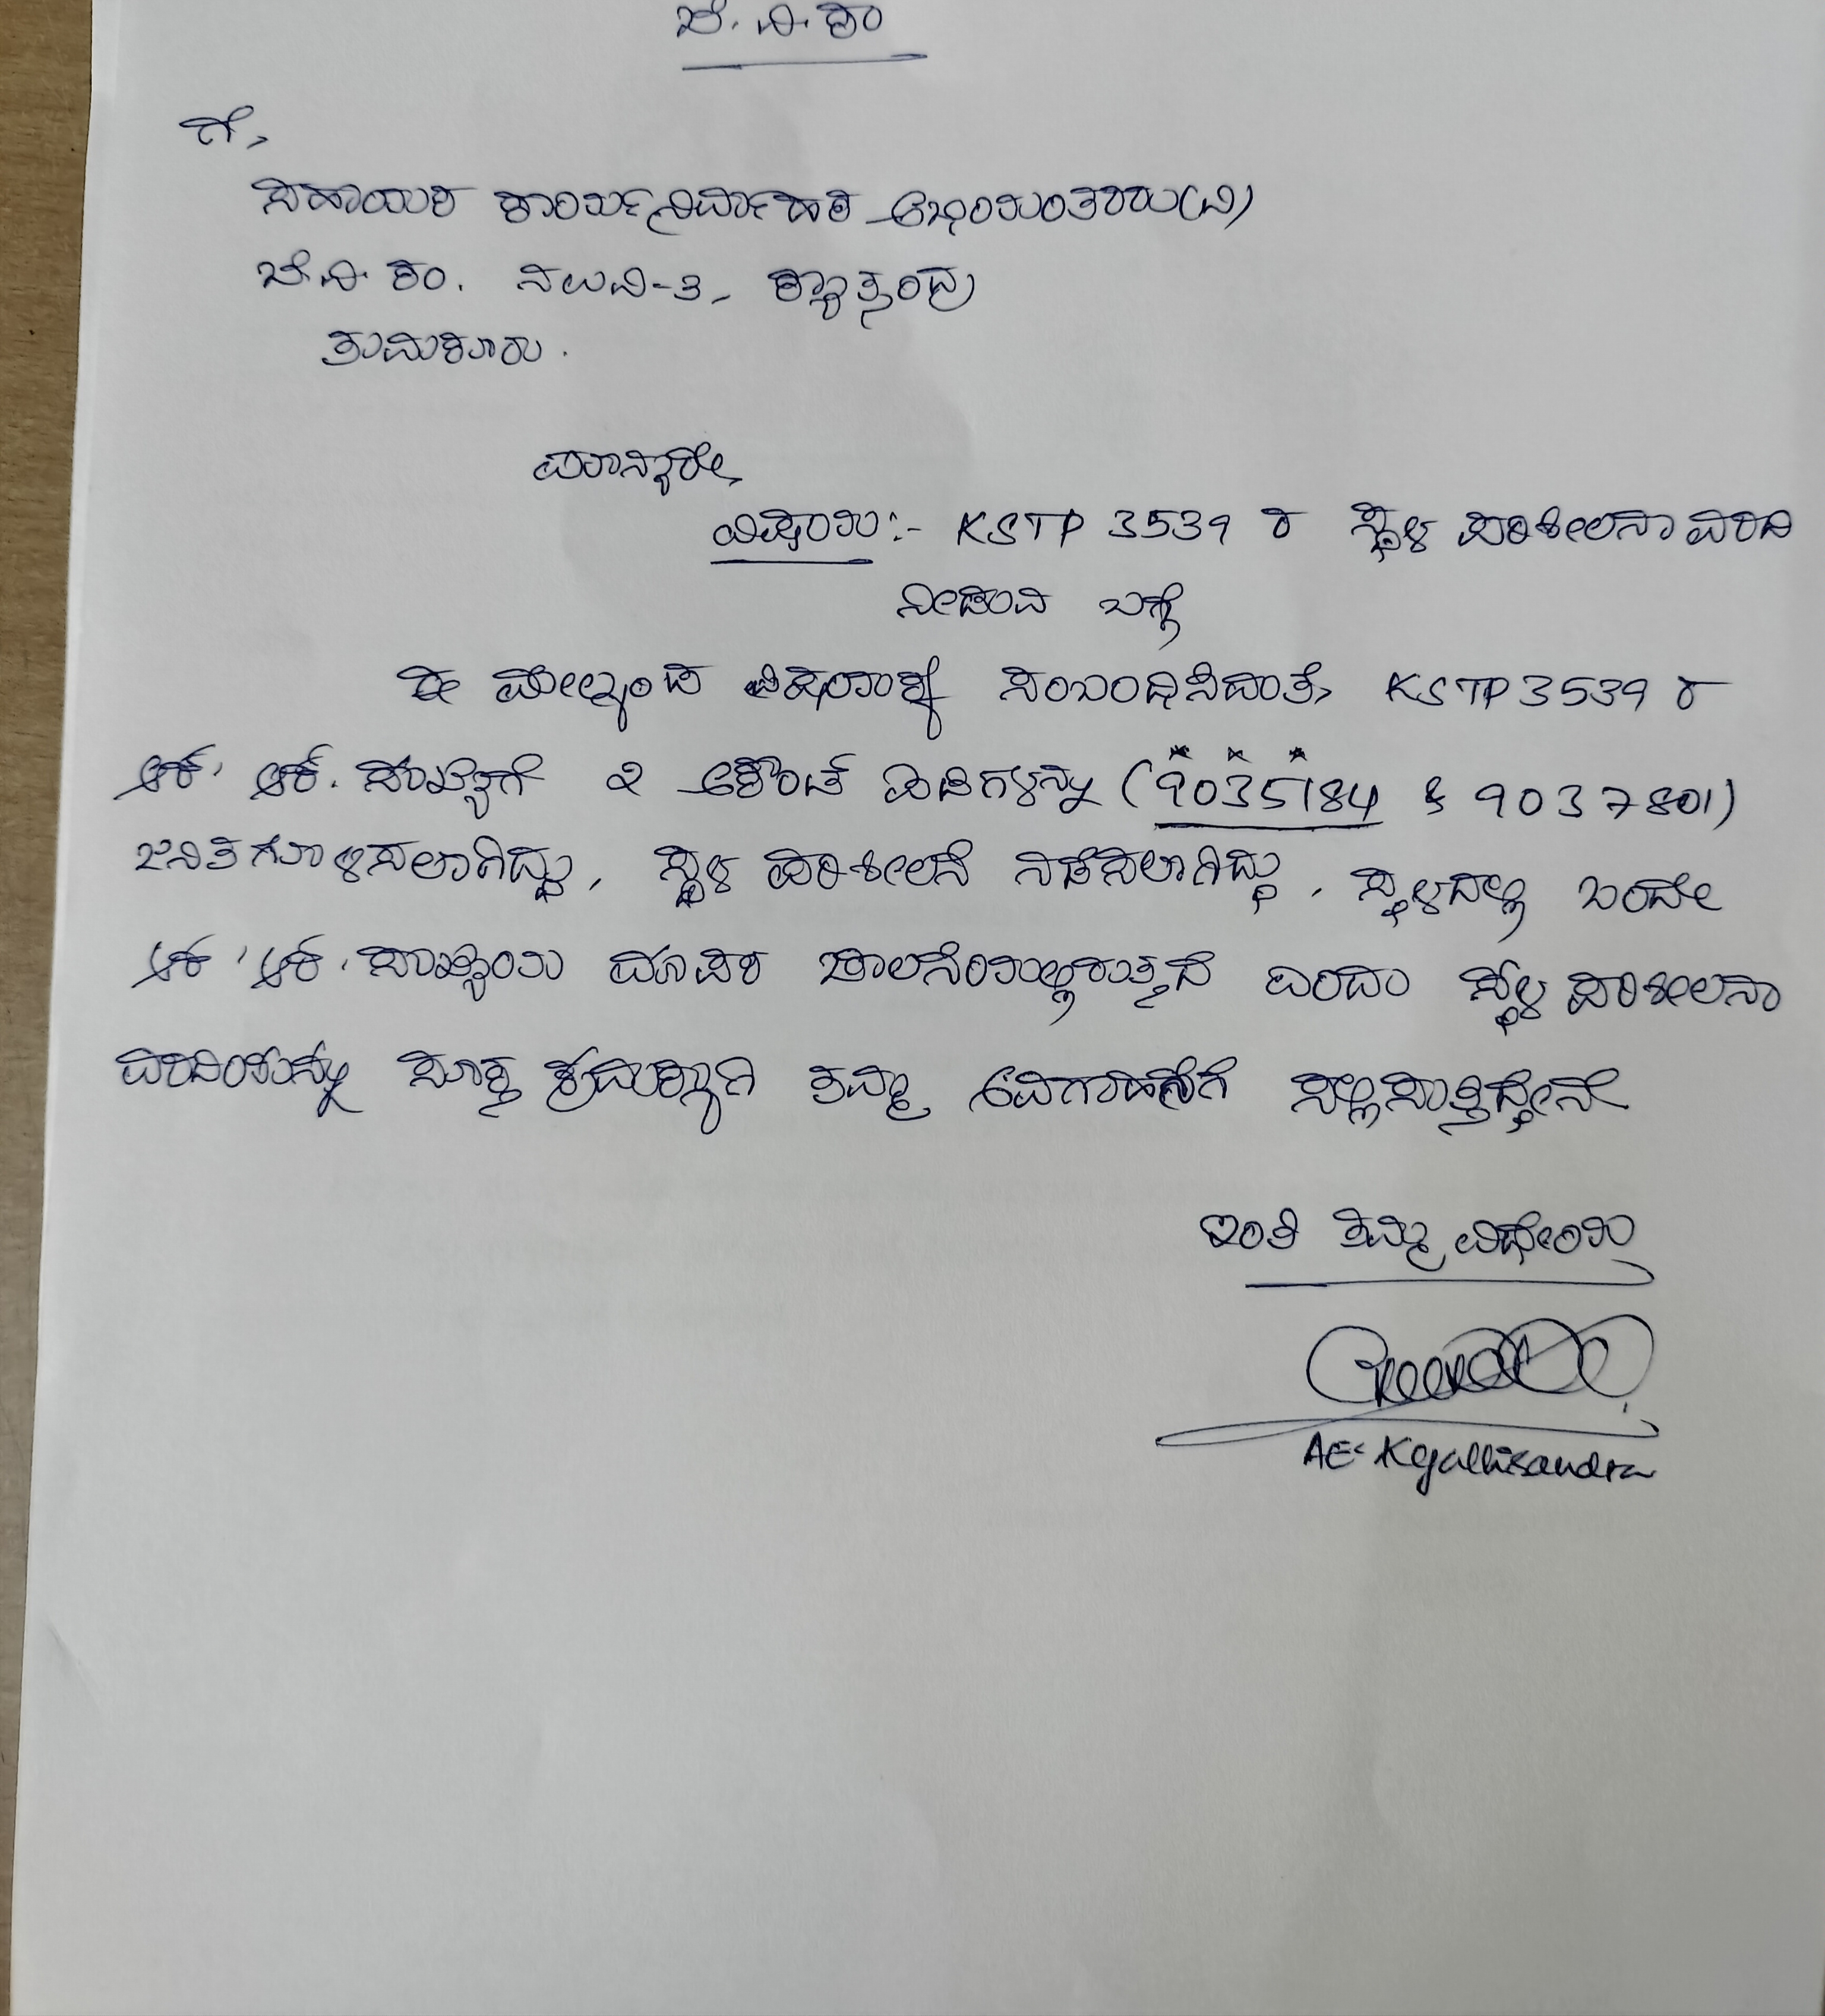 ಬೆ. ವಿ. ಕಂ
ಗೆ,
ಸಹಾಯಕ ಕಾರ್ಯನಿರ್ವಾಹಕ ಅಭಿಯಂತರರು(ವಿ)
ಬೆ.ವಿ.ಕಂ. ನಉವಿ-3, ಕ್ಯಾತ್ಸಂದ್ರ
ತುಮಕೂರು.
ಮಾನ್ಯರೇ,
ವಿಷಯ:- KSTP 3539 ರ ಸ್ಥಳ ಪರಿಶೀಲನಾ ವರದಿ
ನೀಡುವ ಬಗ್ಗೆ
ಈ ಮೇಲ್ಕಂಡ ವಿಷಯಕ್ಕೆ ಸಂಬಂಧಿಸಿದಂತೆ, KSTP 3539 ರ
ಆರ್. ಆರ್. ಸಂಖ್ಯೆಗೆ 2 ಅಕೌಂಟ್ ಐಡಿಗಳನ್ನು (9035184 & 9037801)
ಜನಿತಗೊಳಿಸಲಾಗಿದ್ದು, ಸ್ಥಳ ಪರಿಶೀಲನೆ ನಡೆಸಲಾಗಿದ್ದು, ಸ್ಥಳದಲ್ಲಿ ಒಂದೇ
ಆರ್. ಆರ್. ಸಂಖ್ಯೆಯ ಮಾಪಕ ಚಾಲನೆಯಲ್ಲಿರುತ್ತದೆ ಎಂದು ಸ್ಥಳ ಪರಿಶೀಲನಾ
ವರದಿಯನ್ನು ಸೂಕ್ತ ಕ್ರಮಕ್ಕಾಗಿ ತಮ್ಮ ಅವಗಾಹನೆಗೆ ಸಲ್ಲಿಸುತ್ತಿದ್ದೇನೆ
ಇಂತಿ ತಮ್ಮ ವಿಧೇಯ
AE- Kyathsandra